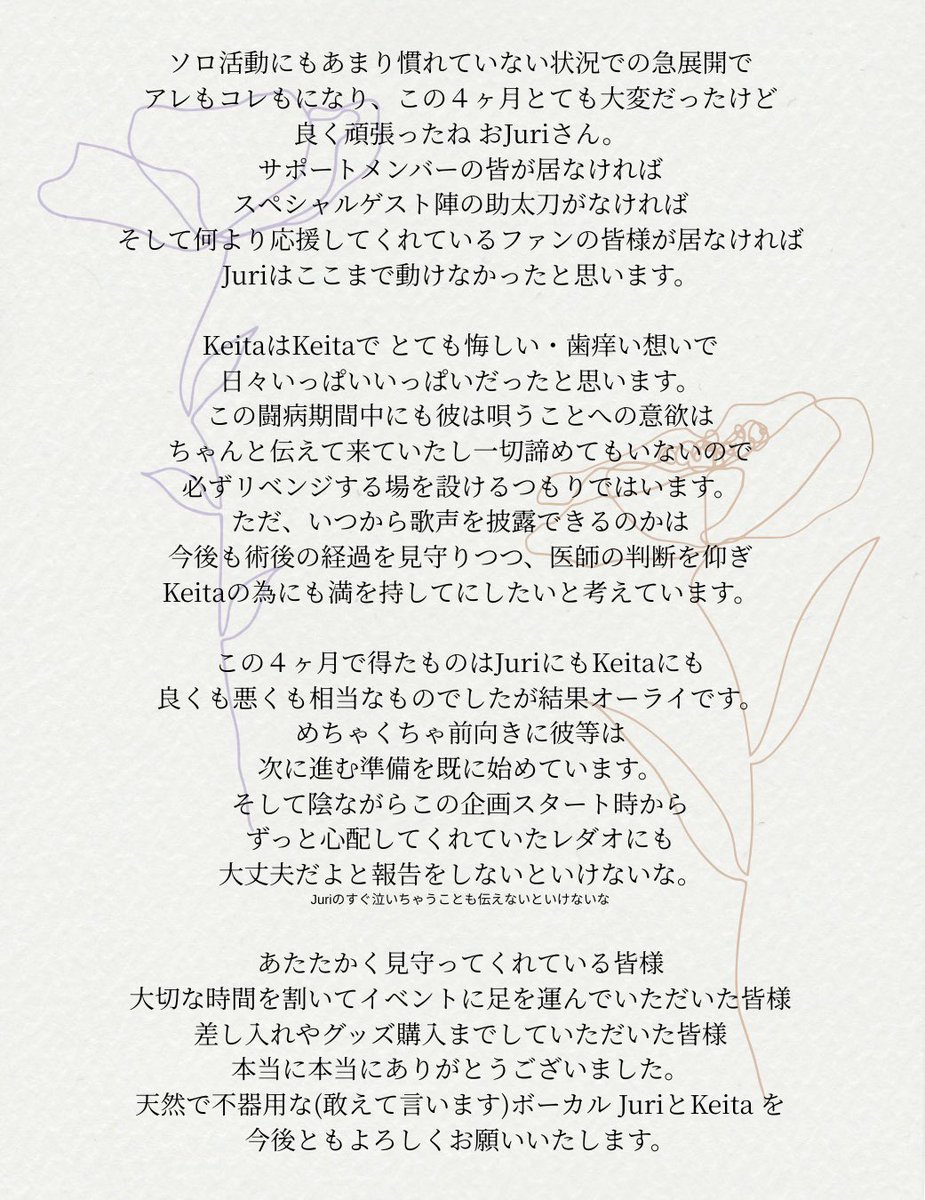 ソロ活動にもあまり慣れていない状況での急展開で
アレもコレもになり、この４ヶ月とても大変だったけど
良く頑張ったね おJuriさん。
サポートメンバーの皆が居なければ
スペシャルゲスト陣の助太刀がなければ
そして何より応援してくれているファンの皆様が居なければ
Juriはここまで動けなかったと思います。
KeitaはKeitaで とても悔しい・歯痒い想いで
日々いっぱいいっぱいだったと思います。
この闘病期間中にも彼は唄うことへの意欲は
ちゃんと伝えて来ていたし一切諦めてもいないので
必ずリベンジする場を設けるつもりではいます。
ただ、いつから歌声を披露できるのかは
今後も術後の経過を見守りつつ、医師の判断を仰ぎ
Keitaの為にも満を持してにしたいと考えています。
この４ヶ月で得たものはJuriにもKeitaにも
良くも悪くも相当なものでしたが結果オーライです。
めちゃくちゃ前向きに彼等は
次に進む準備を既に始めています。
そして陰ながらこの企画スタート時から
ずっと心配してくれていたレダオにも
大丈夫だよと報告をしないといけないな。
Juriのすぐ泣いちゃうことも伝えないといけないな
あたたかく見守ってくれている皆様
大切な時間を割いてイベントに足を運んでいただいた皆様
差し入れやグッズ購入までしていただいた皆様
本当に本当にありがとうございました。
天然で不器用な(敢えて言います)ボーカル JuriとKeita を
今後ともよろしくお願いいたします。